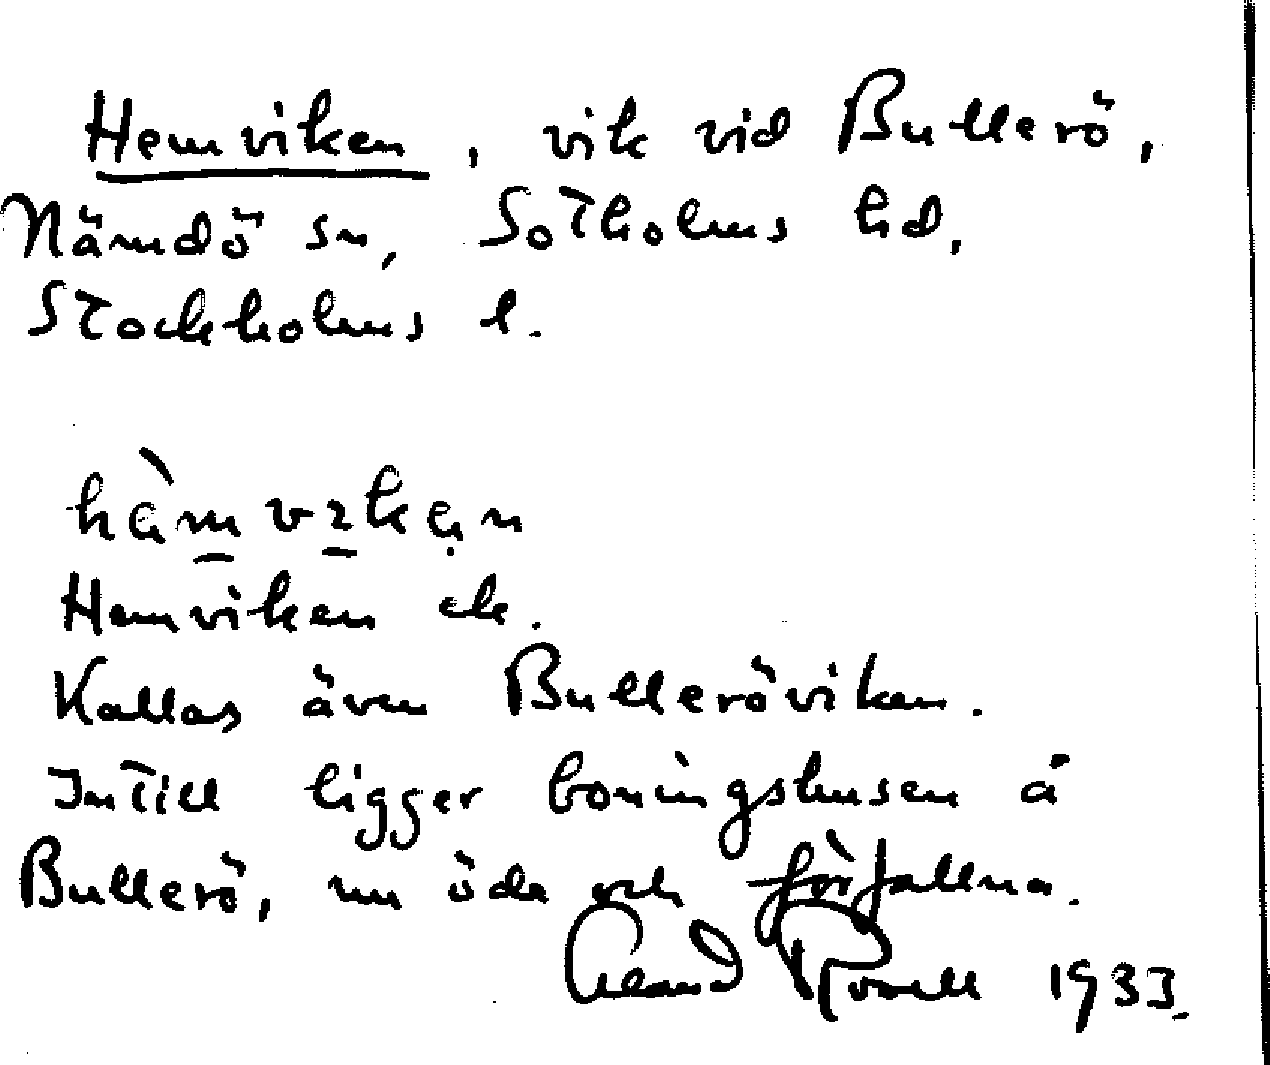 Hemviken, vik vid Bullerö,
Nämdö sn, Sotholms hd,
Stockholms l.
hàmvıkan
Hemviken ek.
Kallas även Bulleröviken.
Intill ligger boningshusen å
Bullerö, nu öde och förfallna.
1933.